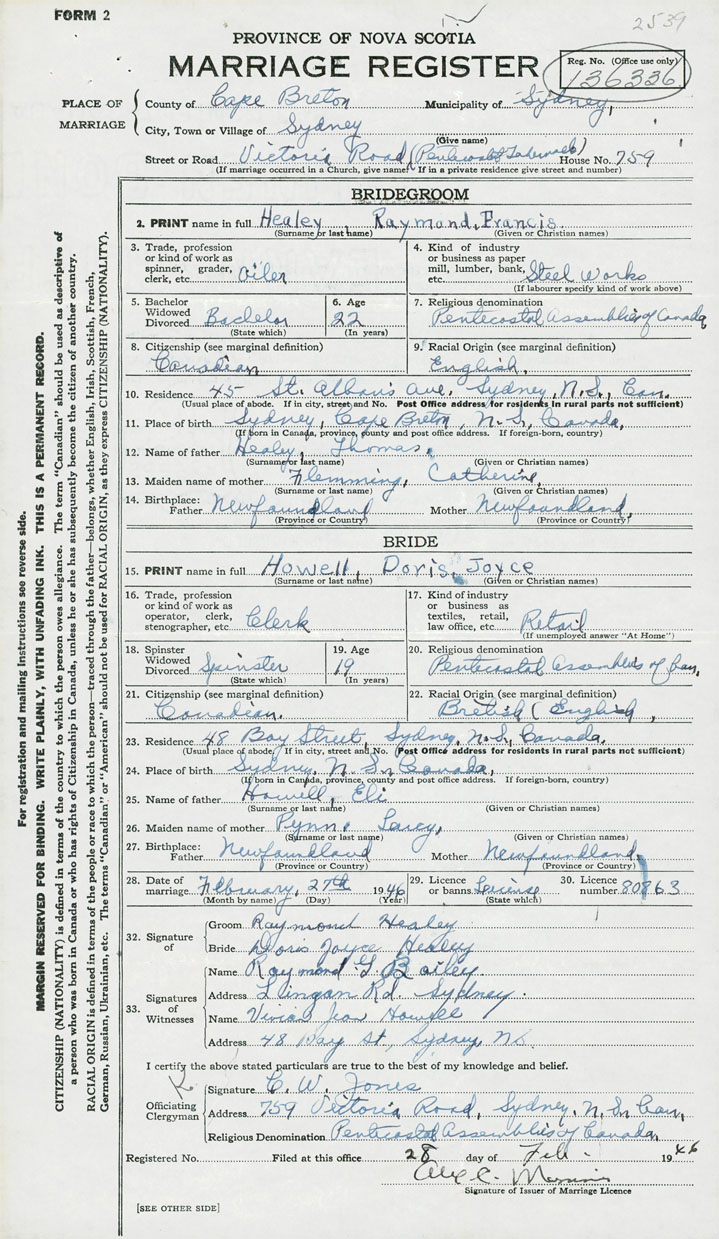 FORM 2
2539
PROVINCE OF NOVA SCOTIA
MARRIAGE REGISTER
Reg. No. (Office use only)
136336
PLACE OF MARRIAGE
County of Cape Breton Municipality of Sydney,
City, Town or Village of Sydney
(Give name)
Street or Road Victoria Road (Pentecostal Tabernacle) House No. 759
(If marriage occurred in a Church, give name. If in a private residence give street and number)
BRIDEGROOM
2. PRINT name in full Healey, Raymond, Francis.
(Surname or last name) (Given or Christian names)
3. Trade, profession or kind of work as spinner, grader, clerk, etc. Oiler
4. Kind of industry or business as paper mill, lumber, bank, etc. Steel Works
(If labourer specify kind of work above)
5. Bachelor Widowed Divorced Bachelor
(State which)
6. Age 22
(In years)
7. Religious denomination
Pentecostal Assemblies of Canada
8. Citizenship (see marginal definition)
Canadian
9. Racial Origin (see marginal definition)
English.
10. Residence 45 St. Albans Ave. Sydney, N.S., Can.
(Usual place of abode. If in city, street and No. Post Office address for residents in rural parts not sufficient)
11. Place of birth Sydney, Cape Breton, N.S., Canada,
(If born in Canada, province, county and post office address. If foreign-born, country)
12. Name of father Healey, Thomas.
(Surname or last name) (Given or Christian names)
13. Maiden name of mother Flemming, Catherine,
(Surname or last name) (Given or Christian names)
14. Birthplace: Father Newfoundland Mother Newfoundland,
(Province or Country) (Province or Country)
BRIDE
15. PRINT name in full Howell, Doris, Joyce
(Surname or last name) (Given or Christian names)
16. Trade, profession or kind of work as operator, clerk, stenographer, etc. Clerk
17. Kind of industry or business as textiles, retail, law office, etc. Retail
(If unemployed answer "At Home")
18. Spinster Widowed Divorced Spinster
(State which)
19. Age 19
(In years)
20. Religious denomination
Pentecostal Assemblies of Can,
21. Citizenship (see marginal definition)
Canadian.
22. Racial Origin (see marginal definition)
British (English,
23. Residence 48 Bay Street, Sydney, N.S, Canada.
(Usual place of abode. If in city, street and No. (Post Office address for residents in rural parts not sufficient)
24. Place of birth Sydney, N.S., Canada,
(If born in Canada, province, county and post office address. If foreign-born, country)
25. Name of father Howell, Eli
(Surname or last name) (Given or Christian names)
26. Maiden name of mother Pynn,
(Surname or last name) (Given or Christian names)
27. Birthplace: Father Newfoundland Mother Newfoundland,
(Province or Country) (Province or Country)
28. Date of marriage February, 27th 1946
(Month by name) (Day) (Year)
29. Licence or banns License
(State which)
30. Licence number 80863
32. Signature of
Groom Raymond Healey
Bride Doris Joyce Healey
33. Signatures of Witnesses
Name Raymond G Bailey.
Address Lingan Rd. Sydney.
Name Vivian Jean Howell
Address 48 Bay St, Sydney, N.S.
I certify the above stated particulars are true to the best of my knowledge and belief.
Officiating Clergyman
Signature C. W. Jones
Address 759 Victoria Road, Sydney, N.S., Can,
Religious Denomination Pentecostal Assemblies of Canada,
Registered No. Filed at this office 28 day of Feb. 1946
Signature of Issuer of Marriage Licence
[SEE OTHER SIDE]
For registration and mailing instructions see reverse side.
MARGIN RESERVED FOR BINDING. WRITE PLAINLY, WITH UNFADING INK. THIS IS A PERMANENT RECORD.
CITIZENSHIP (NATIONALITY) is defined in terms of the country to which the person owes allegiance. The term "Canadian" should be used as descriptive of
a person who was born in Canada or who has rights of Citizenship in Canada, unless he or she has subsequently become the citizen of another country.
RACIAL ORIGIN is defined in terms of the people or race to which the person—traced through the father—belongs, whether English, Irish, Scottish, French,
German, Russian, Ukrainian, etc. The terms "Canadian" or "American" should not be used for RACIAL ORIGIN, as they express CITIZENSHIP (NATIONALITY).